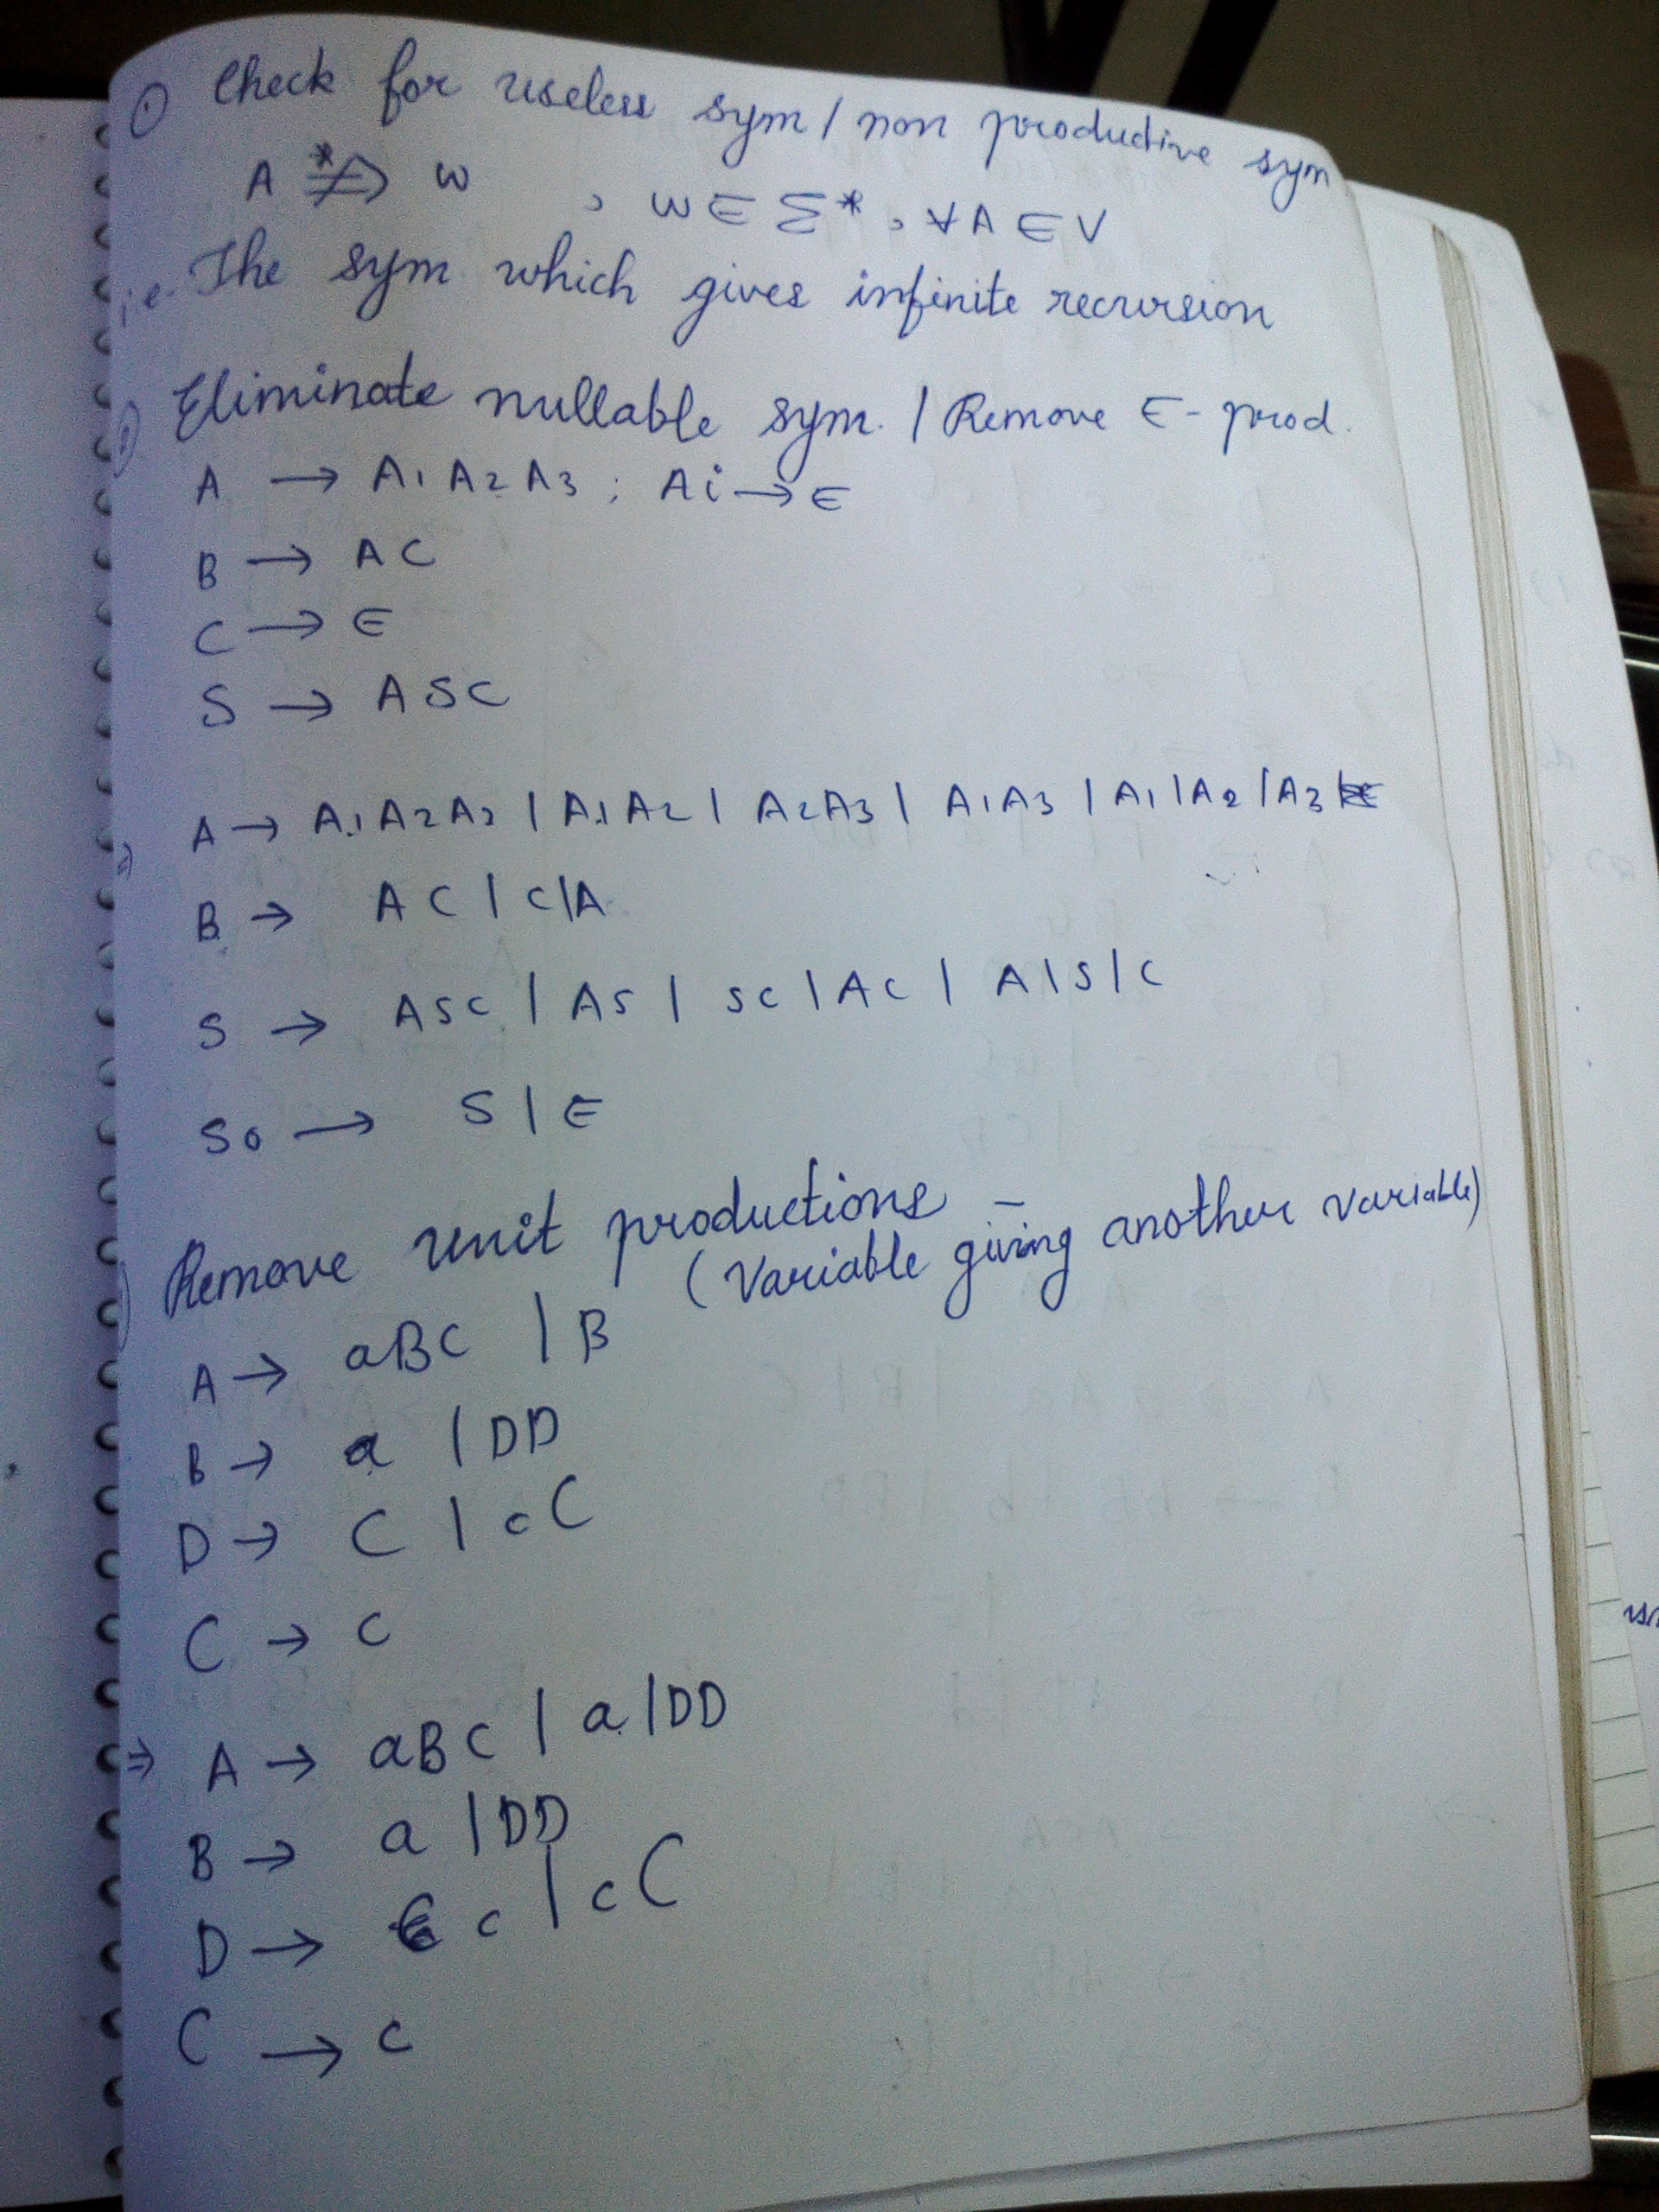 ① Check for useless sym / non productive sym
A *⇏ w , w ∈ Σ* , ∀A ∈ V
i.e. The sym which gives infinite recursion
Eliminate nullable sym. / Remove ∈ - prod.
A → A1 A2 A3 ; Ai → ∈
B → AC
C → ∈
S → ASC
A → A1A2A3 | A1A2 | A2A3 | A1A3 | A1 | A2 | A3
B → AC | C | A
S → ASC | AS | SC | AC | A | S | C
S0 → S | ∈
Remove unit productions –
(Variable giving another variable)
A → aBC | B
B → a | DD
D → C | cC
C → c
⇒ A → aBC | a | DD
B → a | DD
D → c | cC
C → c